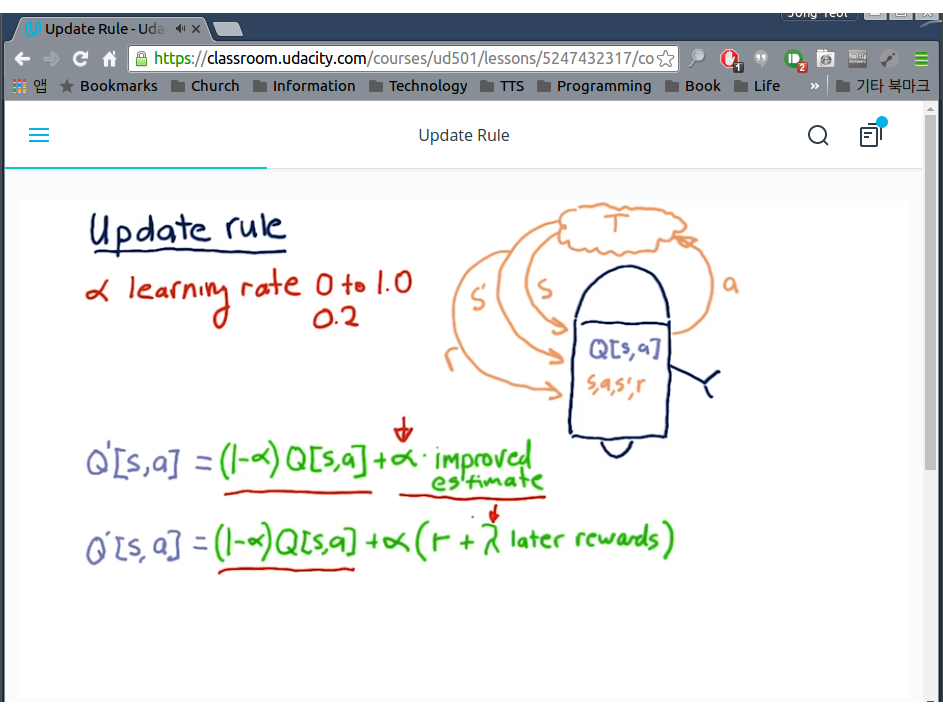 Update Rule - Uda
https://classroom.udacity.com/courses/ud501/lessons/5247432317/co
1
2
앱 Bookmarks Church Information Technology TTS Programming Book Life » 기타 북마크
Update Rule
Update rule
α learning rate 0 to 1.0
0.2
T
s'
s
a
r
Q[s,a]
s,a,s',r
Q'[s,a] = (1-α) Q[s,a] + α · improved
estimate
Q'[s,a] = (1-α) Q[s,a] + α (r + λ later rewards)